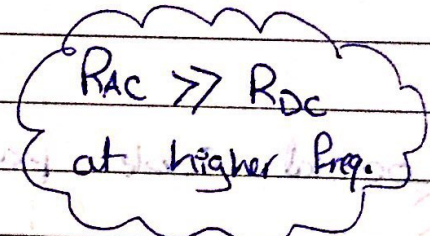 RAC >> RDC
at higher freq.